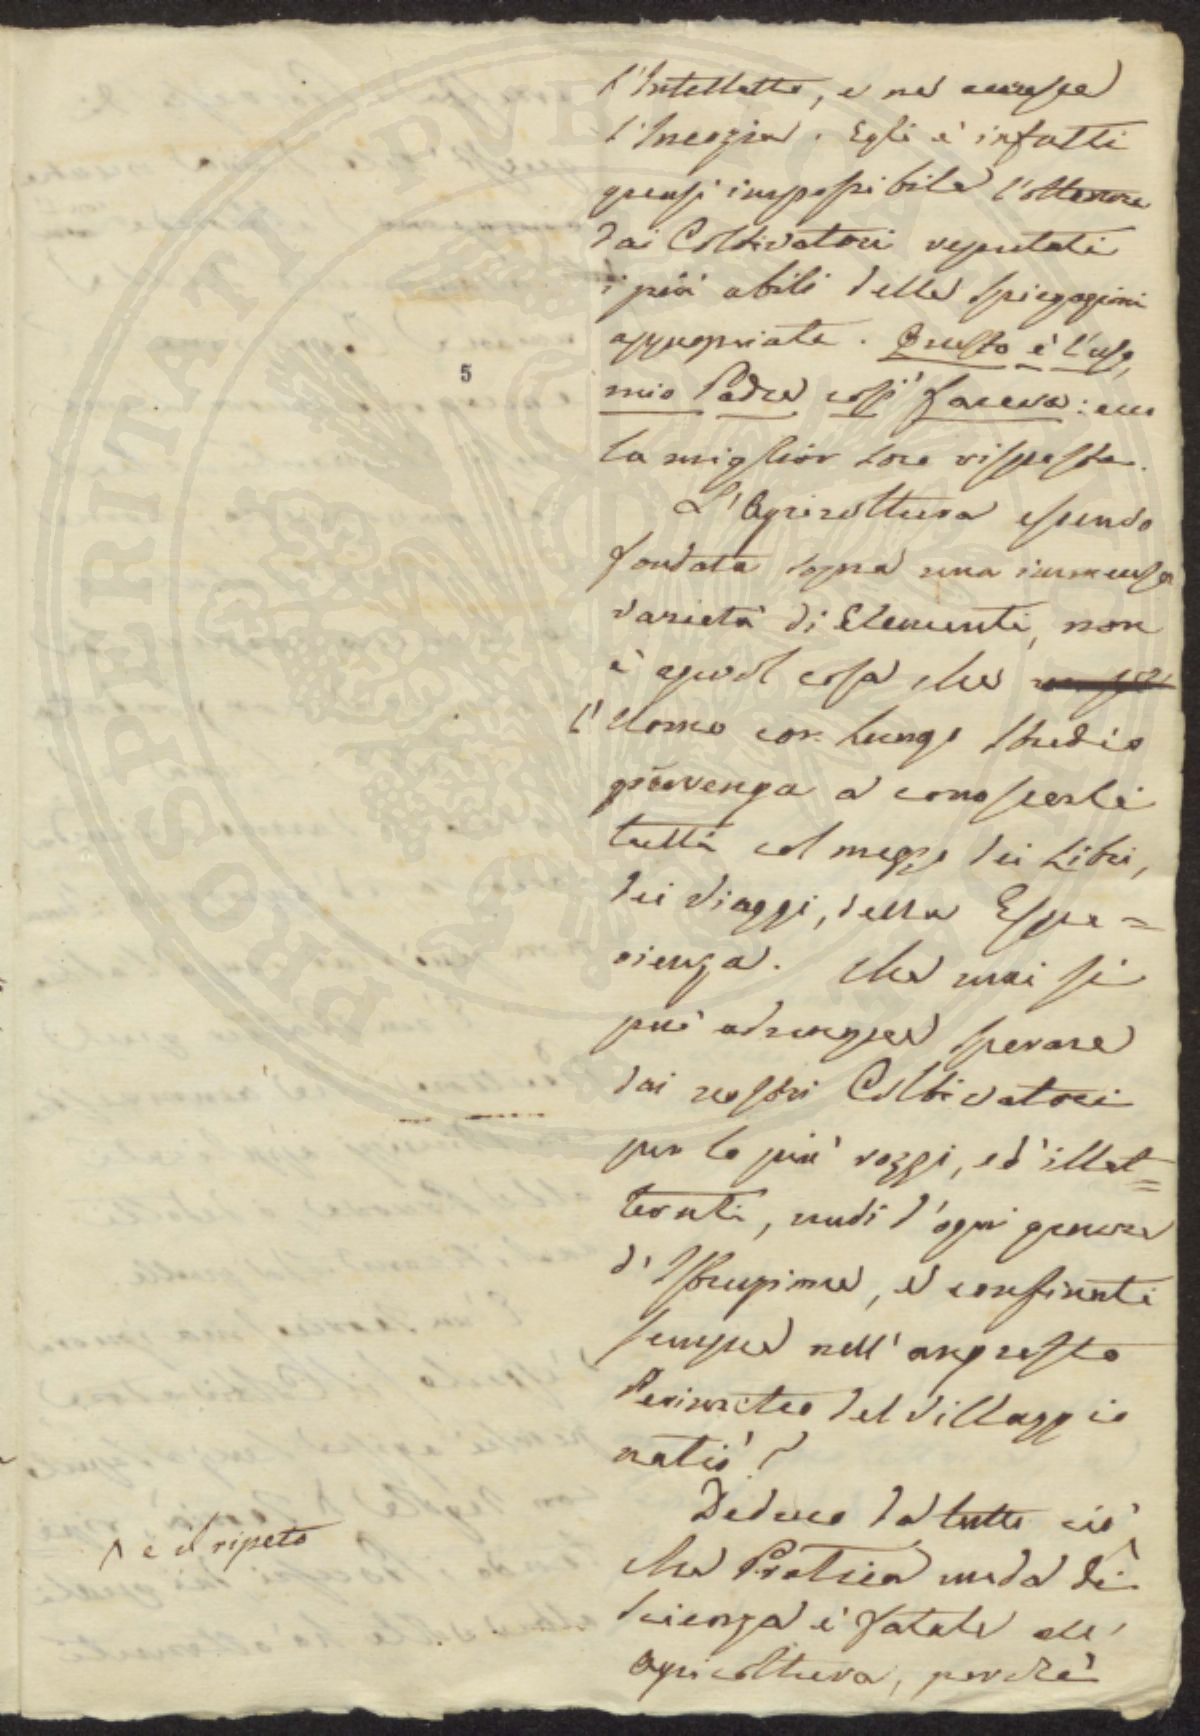 l'Intelletto, e ne accresce
l'Inerzia. Egli è infatti
quasi impossibile l'ottenere
dai Coltivatori reputati
i più abili delle spiegazioni
appropriate. Questo è l'uso,
mio Padre così faceva: ecco
la miglior loro risposta.
L'Agricoltura essendo
fondata sopra una immensa
varietà di Elementi, non
è agevol cosa che
l'Uomo con lungo studio
pervenga a conoscerli
tutti col mezzo dei Libri,
dei Viaggi, della Espe=
rienza. Che mai si
può adunque sperare
dai nostri Coltivatori
per lo più rozzi, ed illet=
terati, nudi d'ogni genere
d'Istruzione, e confinati
sempre nell'angusto
Perimetro del Villaggio
natio?
Deduco da tutto ciò
e il ripeto
che Pratica nuda di
scienza è fatale all'
Agricoltura, perchè
5
PROSPERITATI PUBLICAE